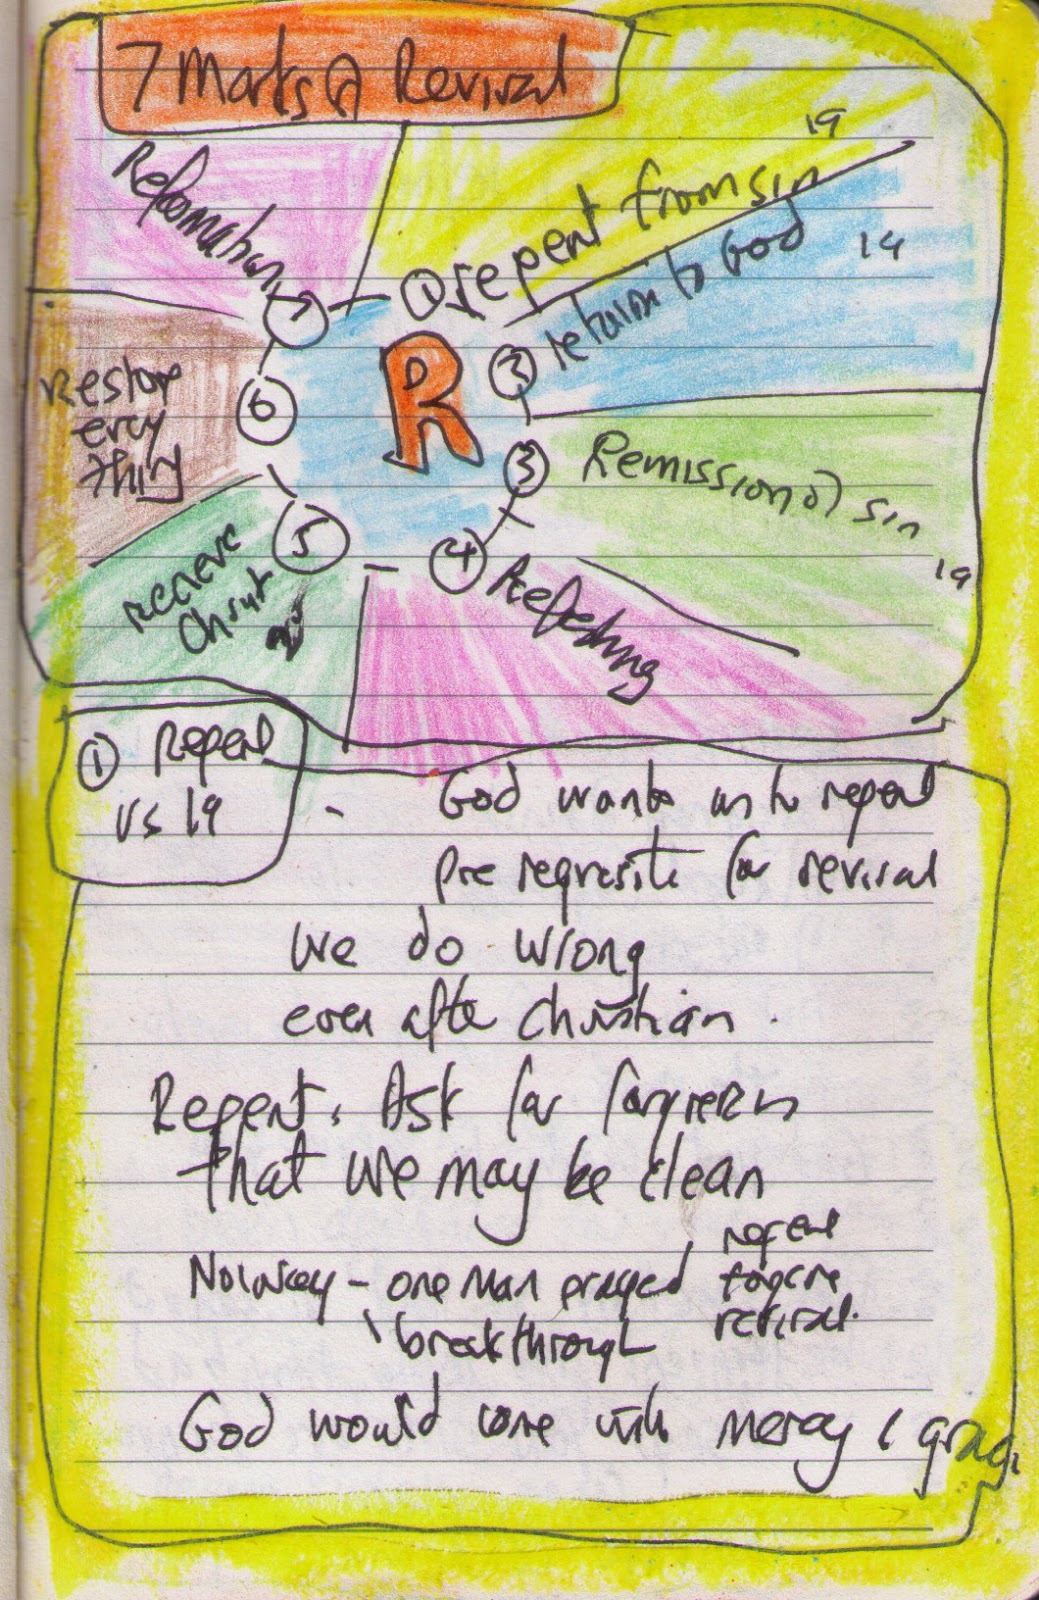 7 Marks of Revival
1 repent from sin 19
2 return to God 19
3 Remission of sin
19
4 Refreshing
5 receive
Christ
6 Restore
every
thing
7 Reformation
R
1 Repent
vs 19
- God wants us to repent
Pre requisite for revival
we do wrong
even after Christian.
Repent. Ask for forgiveness
that we may be clean
Norway - one man prayed
breakthrough
repent
forgive
revival.
God would come with mercy & grace